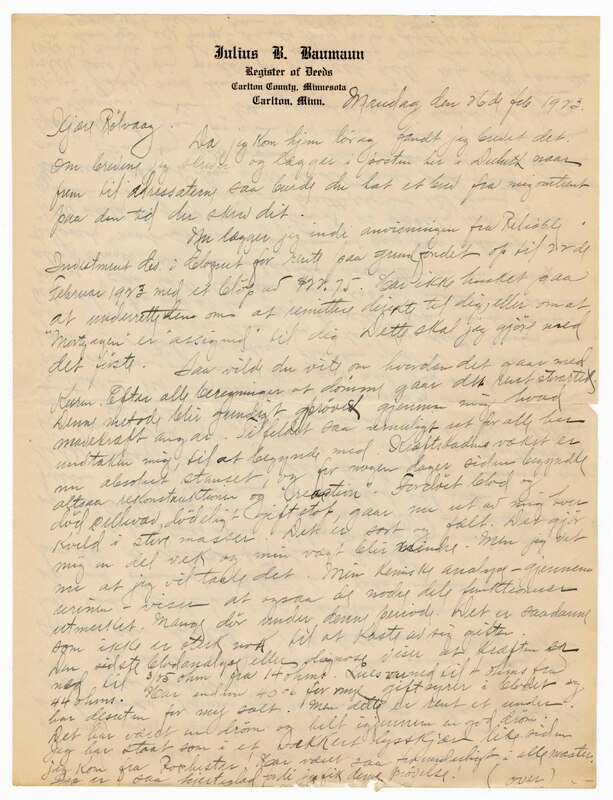 Julius B. Baumann
Register of Deeds
Carlton County, Minnesota
Carlton, Minn.
Mandag den 26de feb. 1923.
Kjære Rölvaag!
Da jeg kom hjem lördag fandt jeg brevet dit.
Om brevene jeg skrev og lægger i posten her i Duluth naar
frem til adressaterne saa burde du hat et brev fra mig omtrent
paa den tid du skrev dit.
Nu lægger jeg inde anvisningen fra "Reliable
Investment Co. i Cloquet for rente paa grunfondet op til 22de
Februar 1923 med et belöp av $22.75. Har ikke husket paa
at underrette dem om at remittere direkte til dig, eller om at
"Mortgagen" er "assigned" til dig. Dette skal jeg gjöre med
det förste. Saa vilde du vite om hvordan det gaar med
Kuren. Efter alle beregninger at dömme gaar det rent storartet.
Denne metode blir grundigt prövet gjennem mig hvad
mavekræft angaar. Tilfeldet saa umuligt ut for alle her
undtaken mig, til at begynde med. Kræftskadens vækst er
nu absolut stanset, og for nogen dager siden begyndte
altsaa rekonstruktionen og "reaction". Forlöst blod og
död cellevæv, dödeligt giftstof, gaar nu ut av mig hver
kveld i store masser. Det er sort og salt. Det gjör
mig en del vek og min vægt blir mindre. Men jeg vet
nu at jeg vil taale det. Min kemiske analyse – gjennem
urinen – viser at ogsaa de nedre dele funktionerer
utmerket. Mange dör under denne periode. Det er saadanne
som ikke er sterk nok til at kaste av sig giften
Den sidste blodanalyse eller diagnose viser at kræften er
ned til 3/25 ohm fra 14 ohms. Lues ned til 4 ohms fra
44 ohms. Har endnu 40% for mye giftsyrer i blodet og
har desuten for mye salt. Men dette er rent et under.
Det har været en dröm og helt igjennem en god dröm.
Jeg har staat som i et vakkert lysskjær like siden
jeg kom fra Rochester. Har været saa förunderligt i alle maater.
Jeg er saa hjerteglad fordi jeg fik denne prövelse. (over)